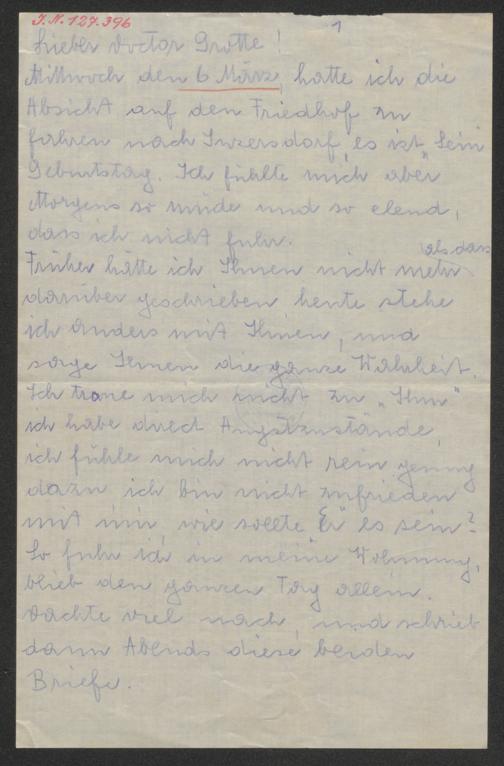 I.N. 127.396
1
Lieber Doctor Grotte!
Mittwoch den 6 März, hatte ich die
Absicht auf den Friedhof zu
fahren nach Inzersdorf, es ist "Sein"
Geburtstag. Ich fühlte mich aber
Morgens so müde und so elend,
dass ich nicht fuhr.
Früher hätte ich Ihnen nicht mehr als dass
darüber geschrieben heute stehe
ich anders mit Ihnen, und
sage Ihnen die ganze Wahrheit.
Ich traue mich nicht zu „Ihm"
ich habe direct Angstzustände,
ich fühle mich nicht rein genug
dazu ich bin nicht zufrieden
mit mir, wie sollte "Er" es sein?
So fuhr ich in meine Wohnung,
blieb den ganzen Tag allein.
dachte viel nach und schrieb
dann Abends diese beiden
Briefe.